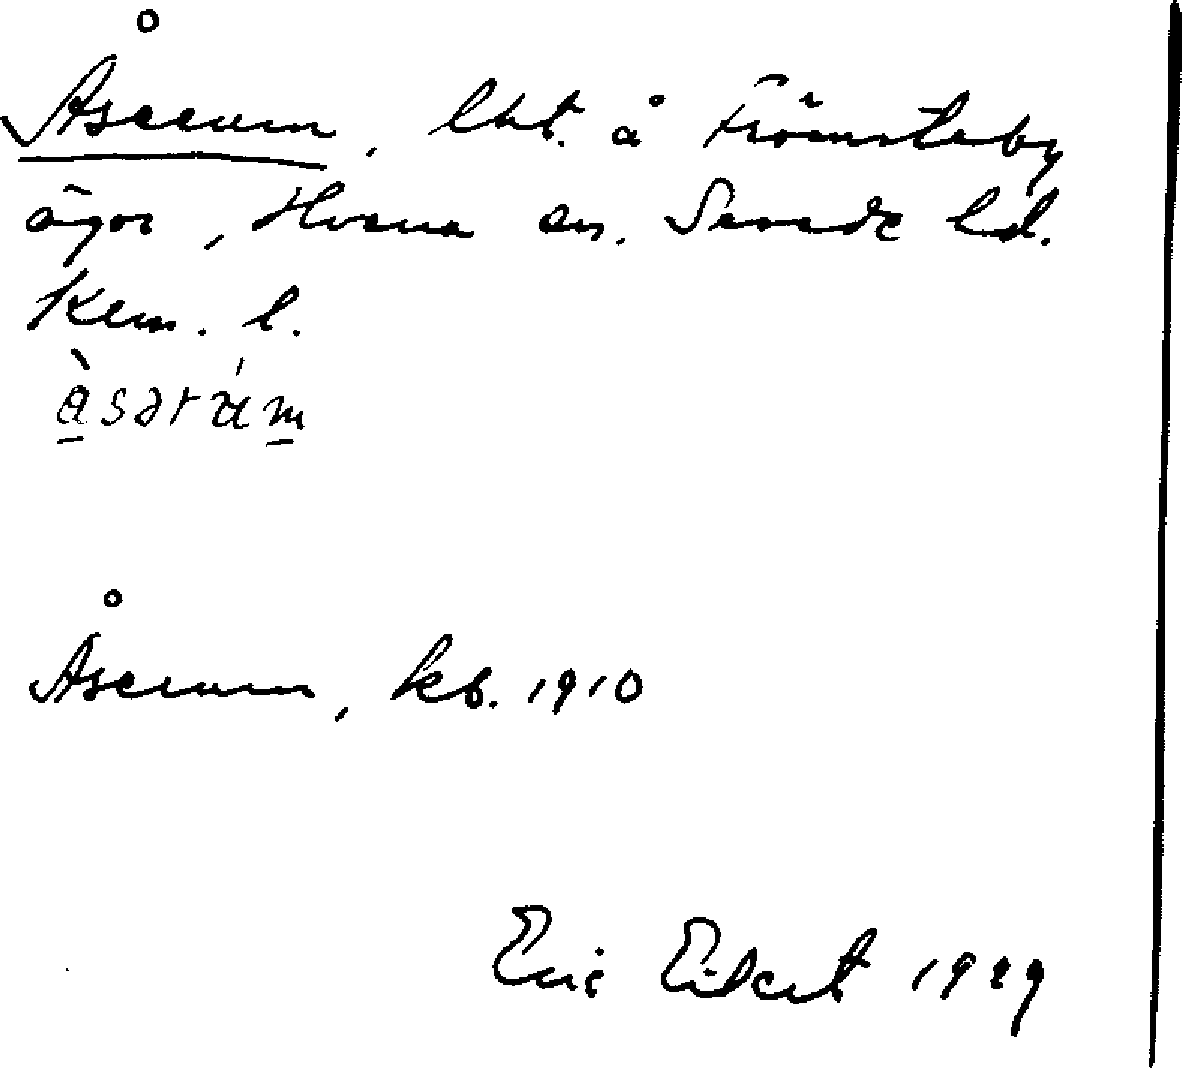 Åserum, lht. å Frömsteby
ägor, Hvena sn. Sevede hd.
Kalm. l.
àsərúm
Åserum, kb. 1910
Eric Elkert 1929